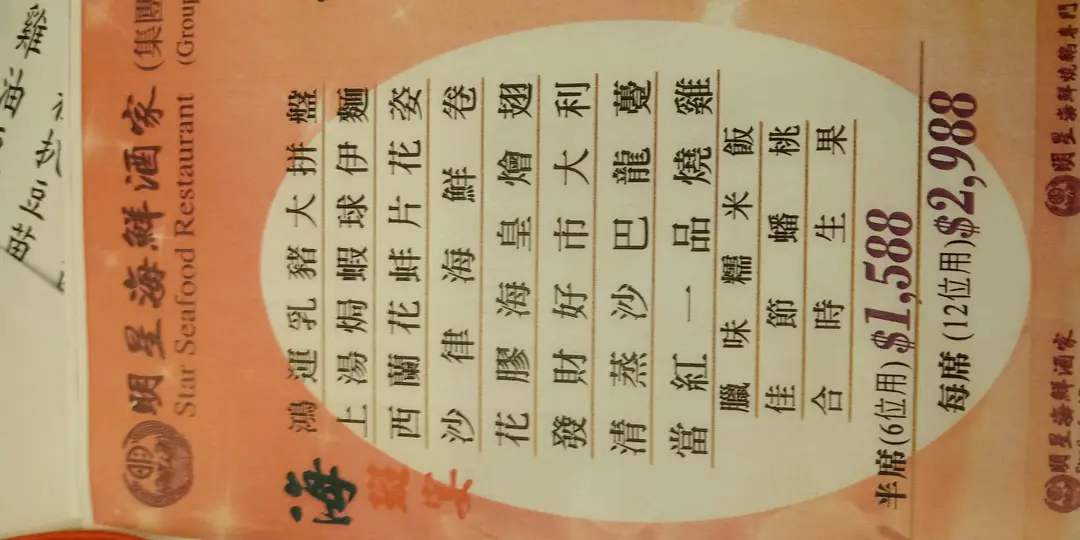 明星海鮮酒家 (集團
Star Seafood Restaurant (Group
海
宴
鴻運乳豬大拼盤
上湯焗蝦球伊麵
西蘭花花蚌片花姿
沙律海鮮卷
花膠海皇燴翅
發財好市大利
清蒸沙巴龍躉
當紅一品燒雞
臘味糯米飯
佳節蟠桃
合時生果
半席(6位用) $1,588
每席 (12位用) $2,988
明星海鮮酒家
明星海鮮燒鵝專門